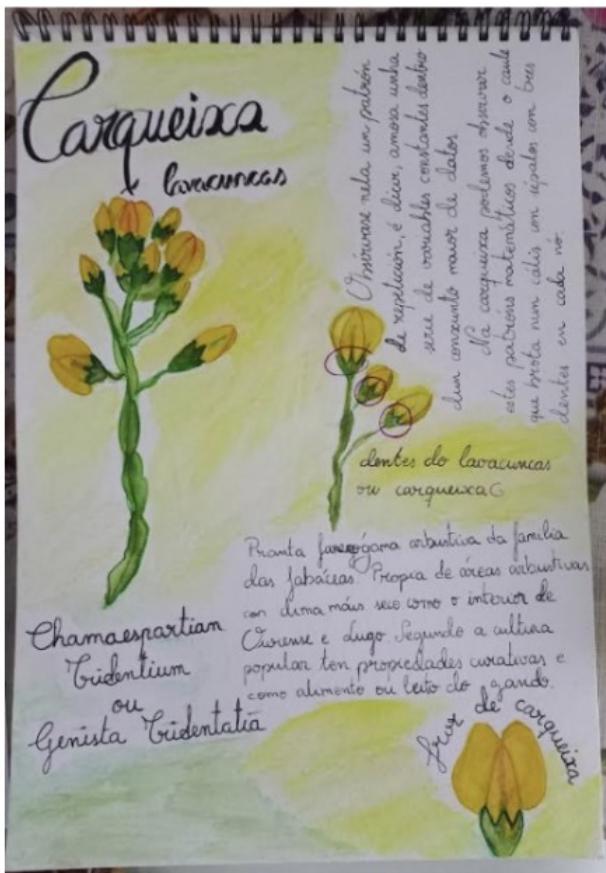 Carqueixa
lavacuncas
Obsérvase nela un patrón
de repetición, é dicir, amosa unha
serie de variables constantes dentro
dun conxunto maior de datos
Na carqueixa podemos observar
estes patróns matemáticos dende o caule
que brota nun cális con sépalos con tres
dentes en cada nó.
dentes do lavacuncas
ou carqueixa
Pranta arbustiva da familia
das fabáceas. Propia de áreas arbustivas
con clima máis seco como o interior de
Ourense e Lugo. Segundo a cultura
popular ten propiedades curativas e
como alimento ou leito do gando.
Chamaespartian
Tridentium
ou
Genista Tridentatiã
fror de carqueixa